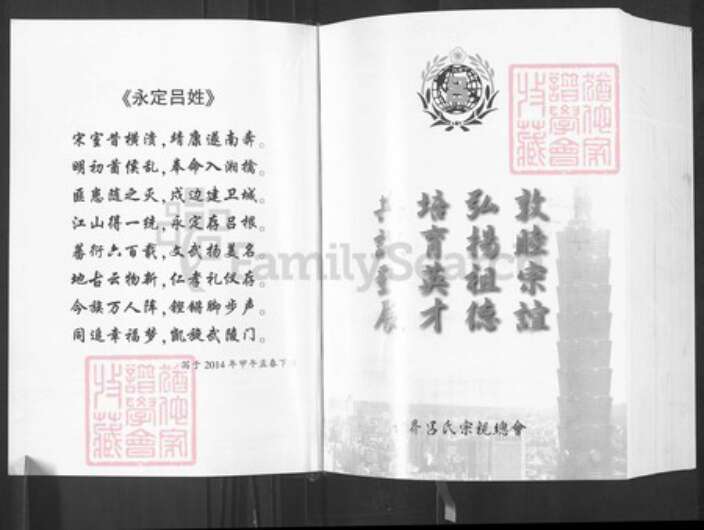 《永定吕姓》
宋室昔横溃,靖康遂南奔。
明初苗侯乱,奉命入湘擒。
匪患随之灭,戍边建卫城。
江山得一统,永定存吕根。
蕃衍六百载,文武扬美名
地古云物新,仁孝礼仪存。
今族万人阵,铿锵脚步声。
同追幸福梦,凯旋武陵门。
写于2014年甲午孟春下
猶他家
譜學會
特藏
敦睦宗誼
弘揚祖德
培育英才
展
界呂氏宗親總會
猶他家
譜學會
特藏
FamilySearch